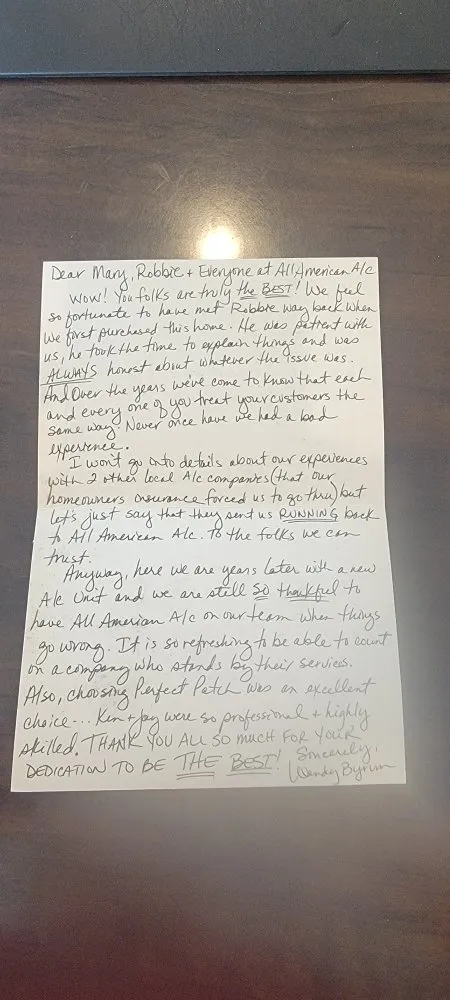 Dear Mary, Robbie + Everyone at All American A/c
WOW! You folks are truly the BEST! We feel
so fortunate to have met Robbie way back when
we first purchased this home. He was patient with
us, he took the time to explain things and was
ALWAYS honest about whatever the issue was.
And Over the years we've come to know that each
and every one of you treat your customers the
same way. Never once have we had a bad
experience.
I won't go into details about our experiences
with 2 other local A/c companies (that our
homeowners insurance forced us to go thru) but
let's just say that they sent us RUNNING back
to All American A/c. To the folks we can
trust.
Anyway, here we are years later with a new
A/c Unit and we are still so thankful to
have All American A/c on our team when things
go wrong. It is so refreshing to be able to count
on a company who stands by their services.
Also, choosing Perfect Patch was an excellent
choice... Ken + Jay were so professional + highly
skilled. THANK YOU ALL SO MUCH FOR YOUR
DEDICATION TO BE THE BEST! Sincerely,
Wendy Byrum